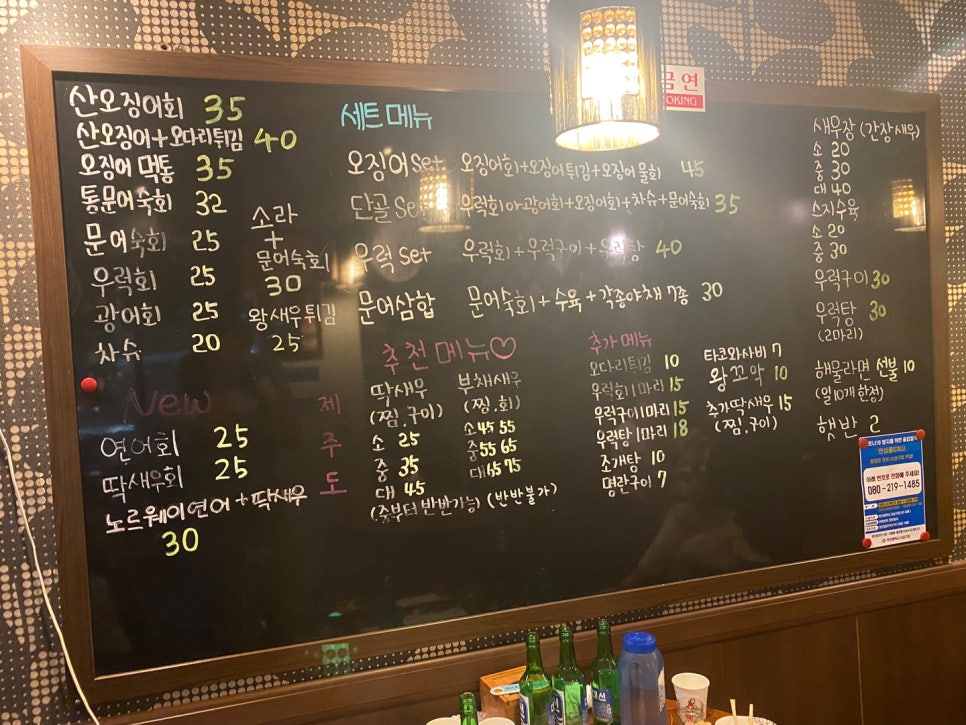 산오징어회 35
산오징어+오다리튀김 40
오징어 먹통 35
통문어숙회 32
문어숙회 25
우럭회 25
광어회 25
차슈 20
소라
+
문어숙회
30
왕새우튀김
25
New
연어회 25
딱새우회 25
노르웨이연어+딱새우
30
세트메뉴
오징어set 오징어회+오징어튀김+오징어물회 45
단골 Set 우럭회 or 광어회+오징어회+차슈+문어숙회 35
우럭 set 우럭회+우럭구이+우럭탕 40
문어삼합 문어숙회+수육+각종야채 7종 30
제
주
도
추천메뉴♡
딱새우
(찜,구이)
소 25
중 35
대 45
(중부터 반반가능)
부채새우
(찜,회)
소45 55
중55 65
대65 75
(반반불가)
추가메뉴
오다리튀김 10
우럭회1마리 15
우럭구이1마리 15
우럭탕1마리 18
조개탕 10
명란구이 7
타코와사비 7
왕꼬막 10
추가딱새우 15
(찜,구이)
새우장 (간장새우)
소 20
중 30
대 40
스지수육
소 20
중 30
우럭구이 30
우럭탕 30
(2마리)
해물라면 선불 10
(일10개 한정)
햇반 2
금연
OKING
080-219-1485